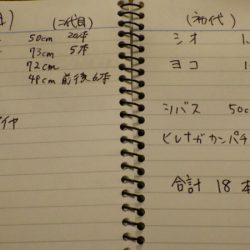 (二代目)
50cm 20本
73cm 5本
72cm
49cm 前後 6本
イヤ
(初代)
シオ 1
ヨコ 1
シバス 50c
ヒレナガカンパチ
合計 18本